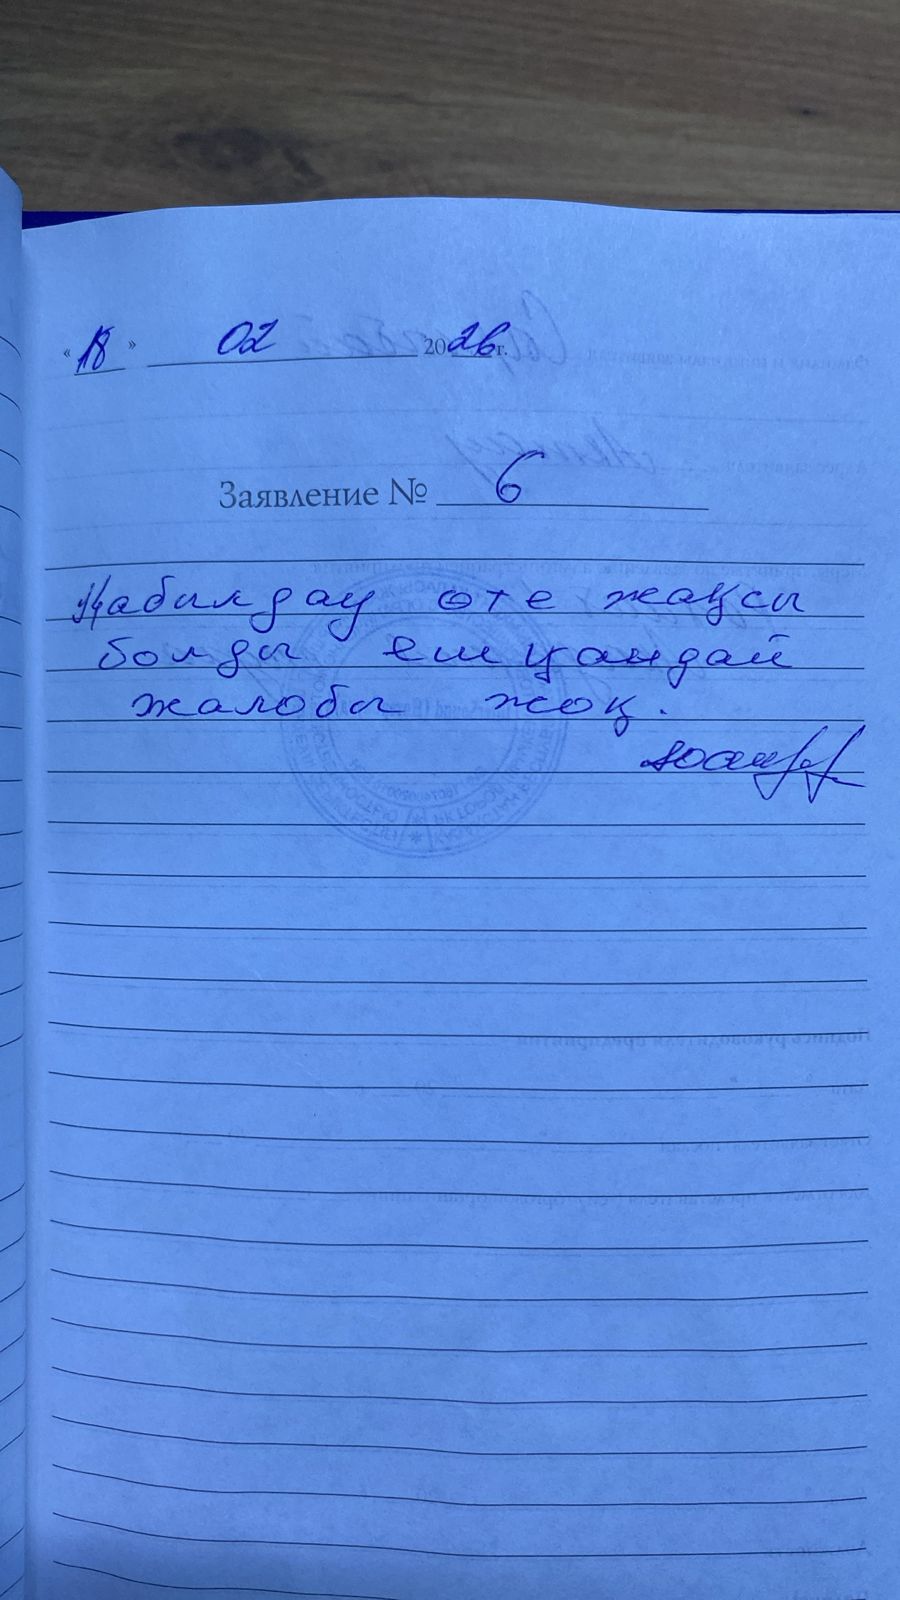 « 18 » 02 2026 г.
Заявление № 6
Қабылдау өте жақсы
болды ешқандай
жалобы жоқ.